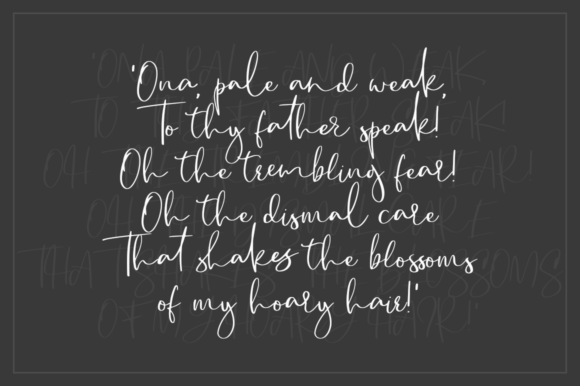 'Ona, pale and weak,
To thy father speak!
Oh the trembling fear!
Oh the dismal care
That shakes the blossoms
of my hoary hair!'